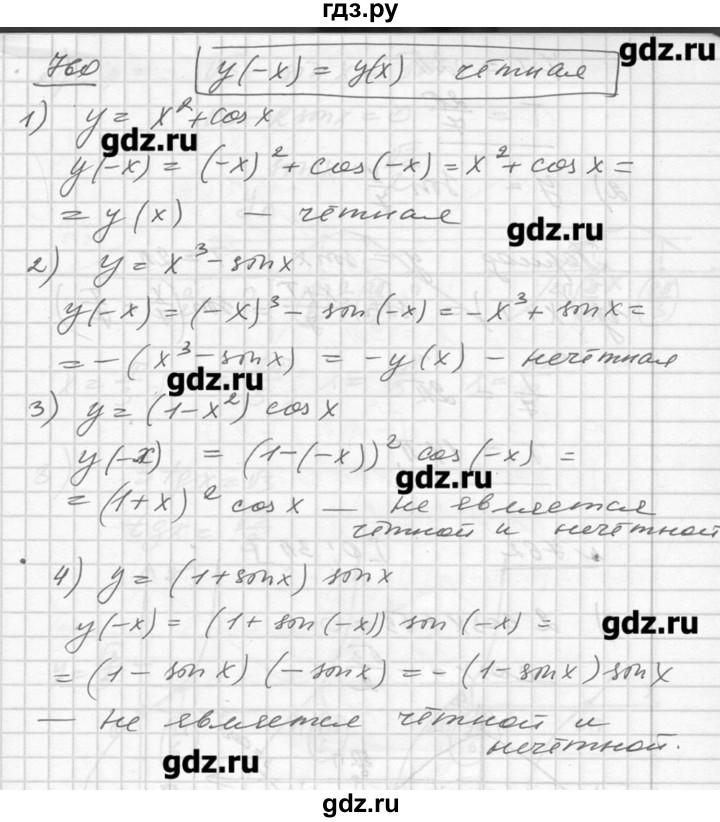 гдз.ру
gdz.ru
760 y(-x) = y(x) чётная
1) y = x² + cos x
gdz.ru
y(-x) = (-x)² + cos(-x) = x² + cos x =
= y(x) — чётная
gdz.ru
2) y = x³ - sin x
y(-x) = (-x)³ - sin(-x) = -x³ + sin x =
= -(x³ - sin x) = -y(x) - нечётная
gdz.ru
3) y = (1-x²) cos x
y(-x) = (1-(-x))² cos(-x) =
gdz.ru
= (1+x)² cos x — не является
чётной и нечётной
4) y = (1+sin x) sin x
y(-x) = (1+ sin(-x)) sin(-x) =
gdz.ru
= (1 - sin x) (-sin x) = - (1-sin x) sin x
— не является чётной и
нечётной.
gdz.ru
gdz.ru